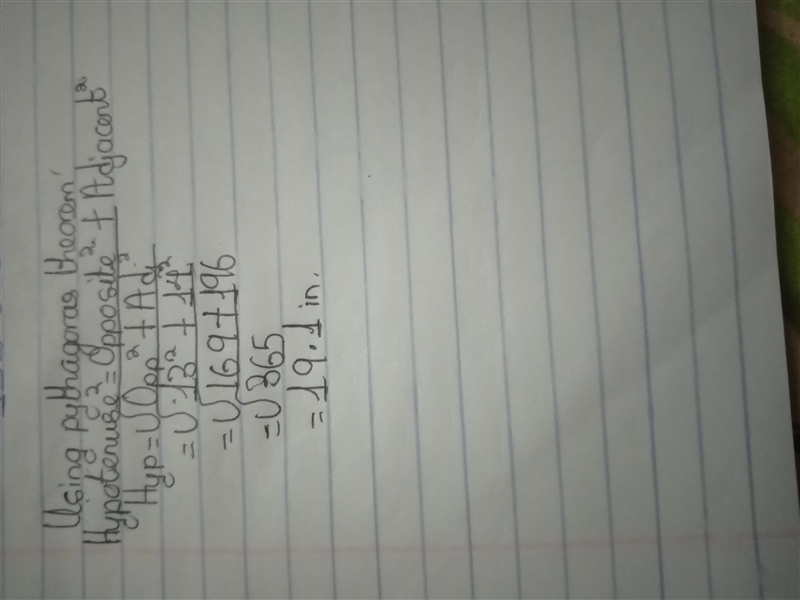 Using pythagoras theorem
Hypotenuse² = Opposite² + Adjacent²
Hyp = √Opp² + Adj²
= √13² + 14²
= √169 + 196
= √365
= 19.1 in.